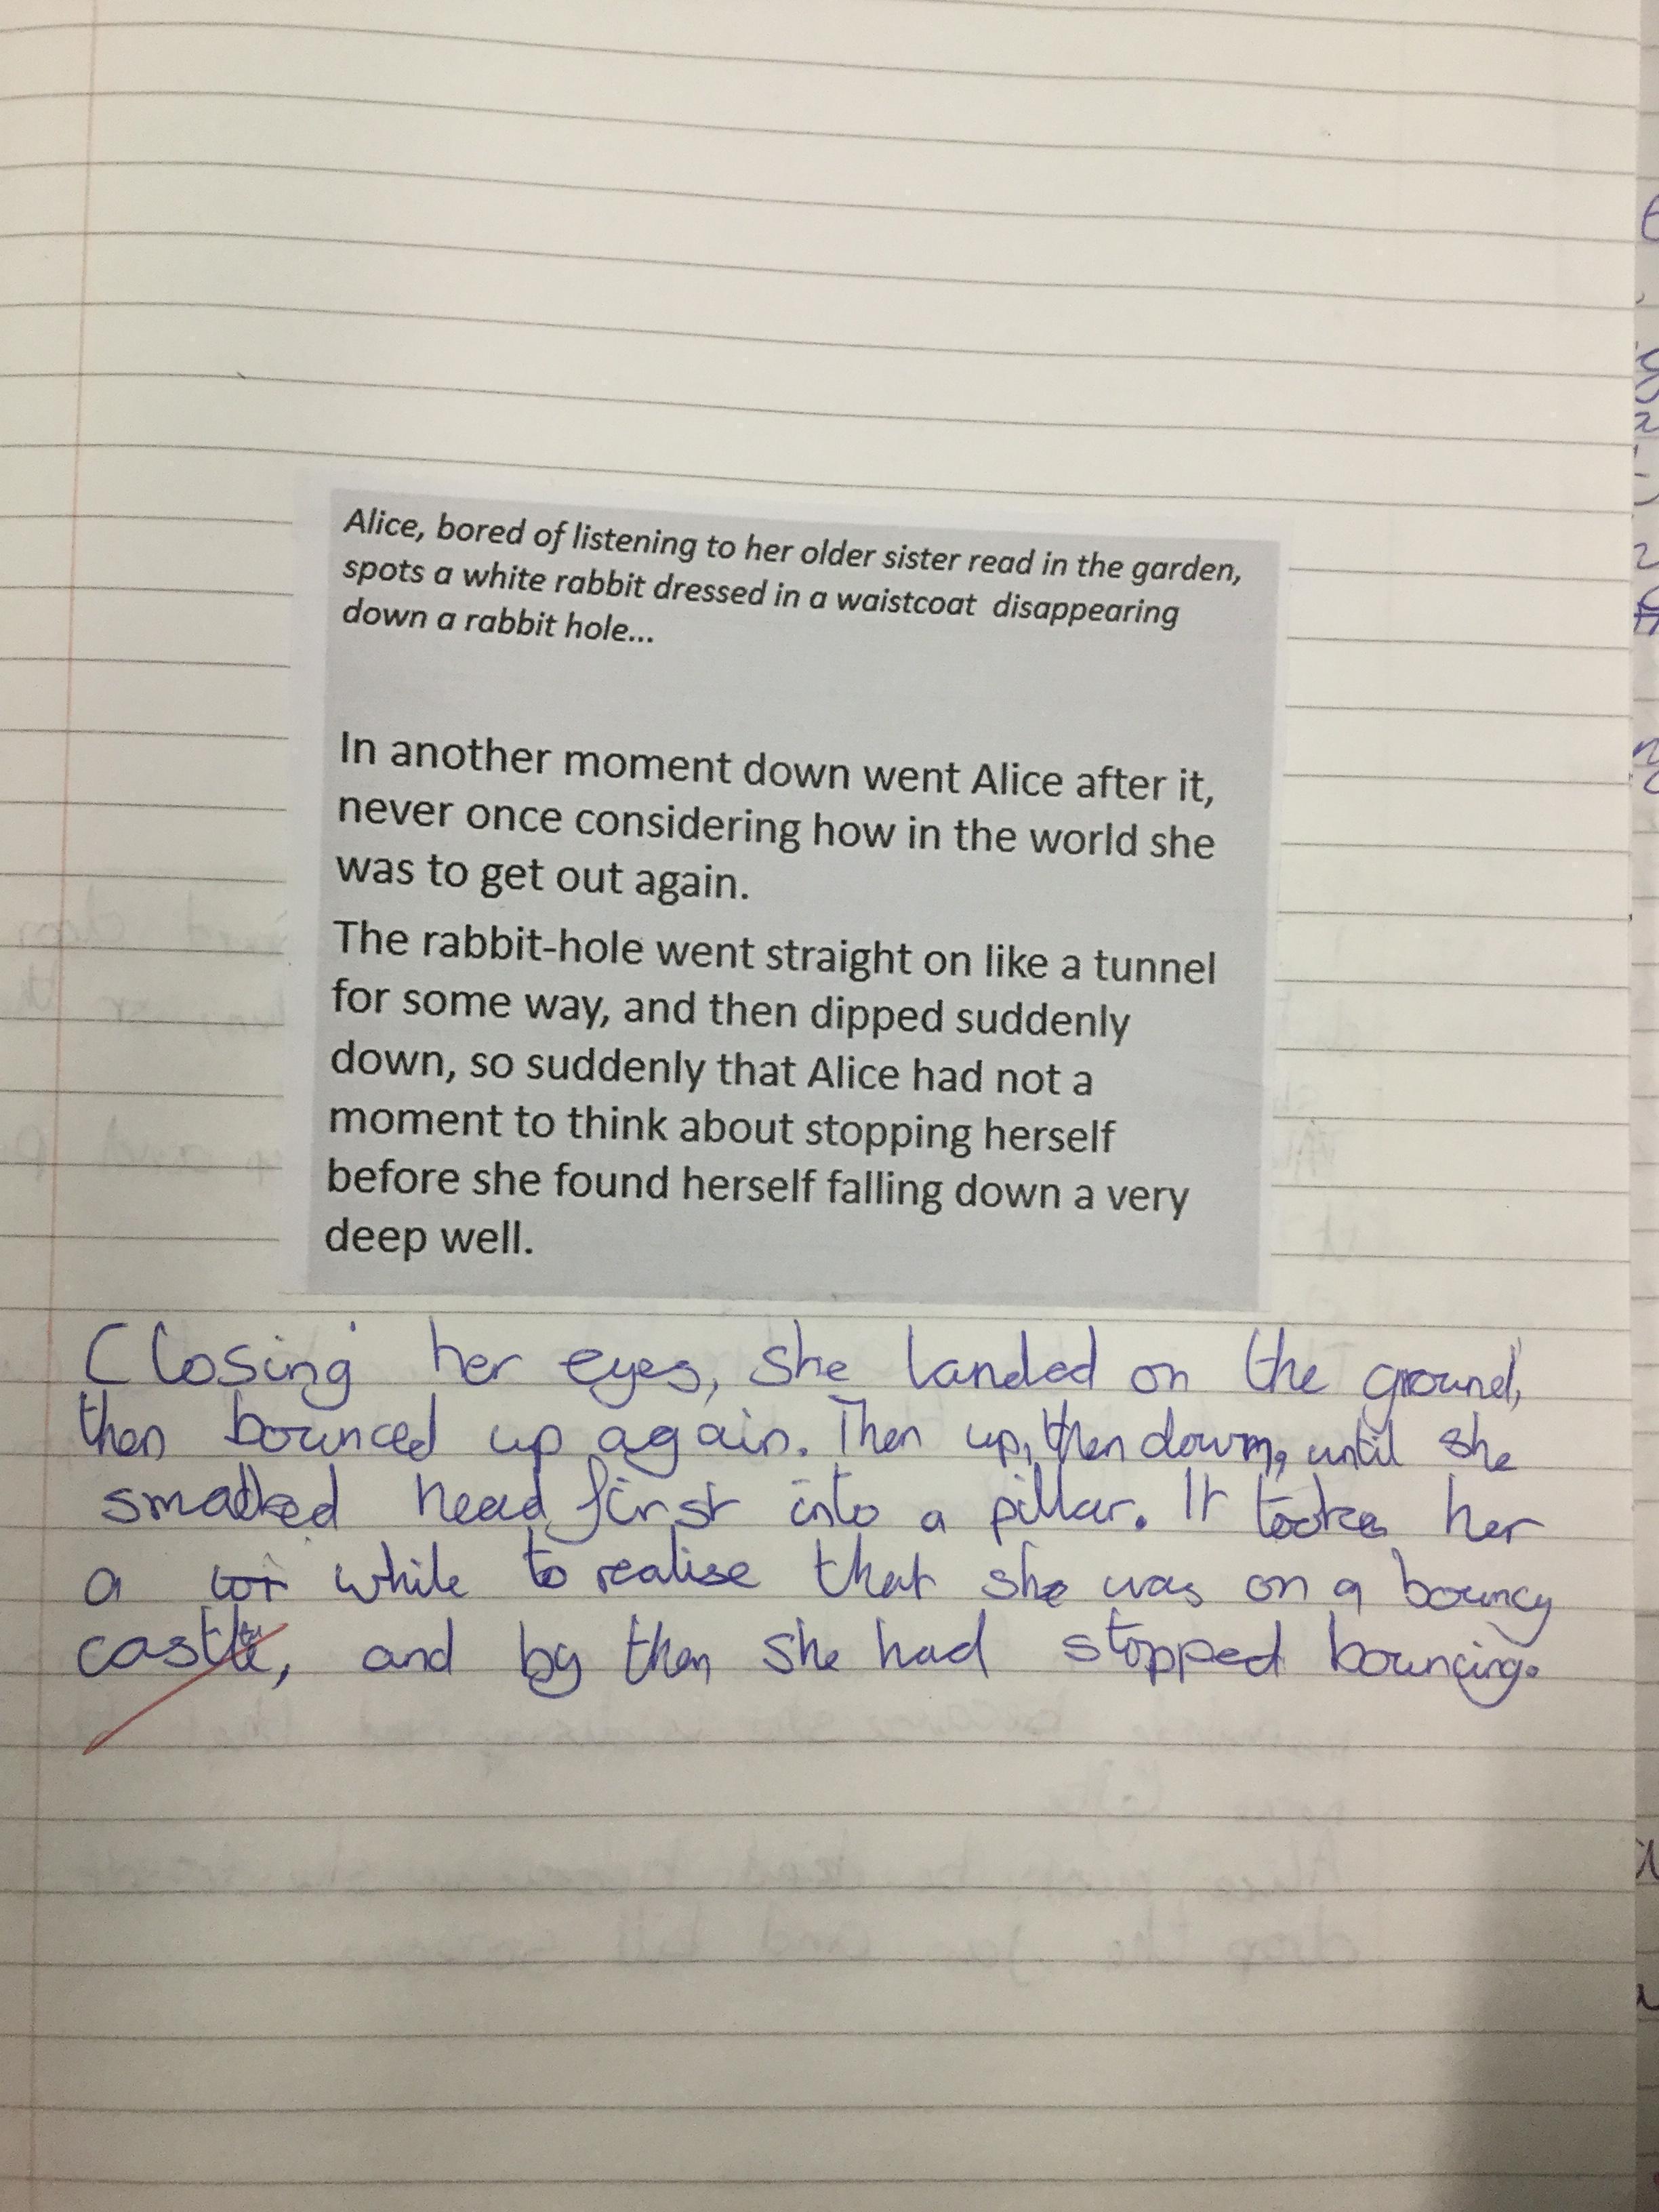 Alice, bored of listening to her older sister read in the garden,
spots a white rabbit dressed in a waistcoat disappearing
down a rabbit hole...
In another moment down went Alice after it,
never once considering how in the world she
was to get out again.
The rabbit-hole went straight on like a tunnel
for some way, and then dipped suddenly
down, so suddenly that Alice had not a
moment to think about stopping herself
before she found herself falling down a very
deep well.
Closing her eyes, she landed on the ground,
then bounced up again. Then up, then down, until she
smacked head first into a pillar. It took her
a while to realise that she was on a bouncy
castle, and by then she had stopped bouncing.